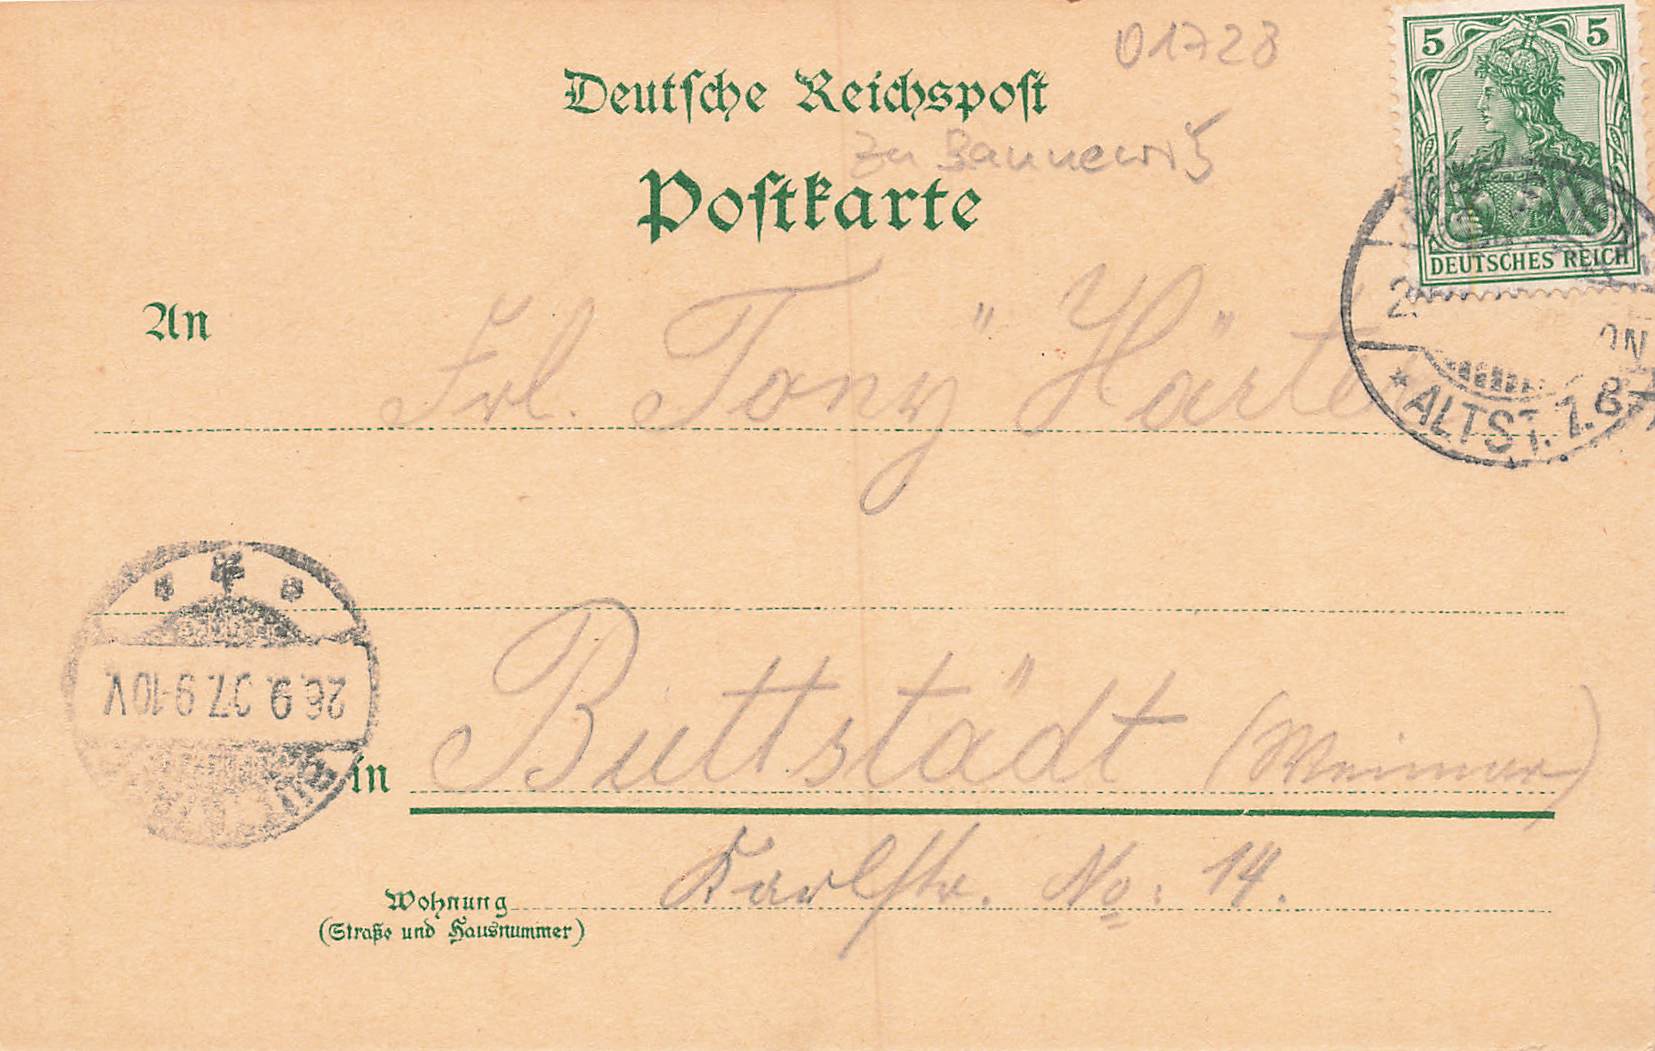 01728
Deutsche Reichspost
zu Bannewitz
Postkarte
5 5
DEUTSCHES REICH
An Frl. Tony Härte
* ALTST. 1.
26.9.07.9-10V.
in Buttstädt (Weimar)
Karlstr. No: 14.
Wohnung
(Straße und Hausnummer)